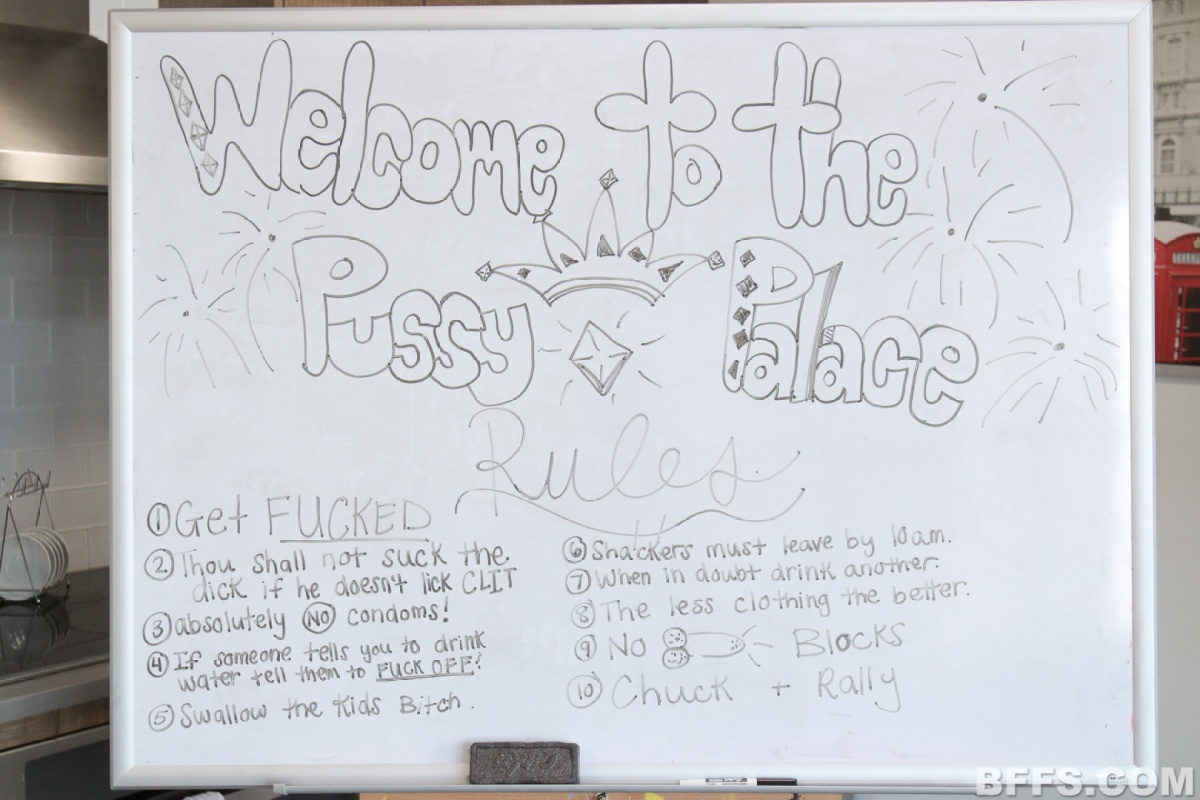 Welcome to the
Pussy Palace
Rules
① Get FUCKED
② Thou shall not suck the
dick if he doesn't lick CLIT
③ absolutely NO condoms!
④ If someone tells you to drink
water tell them to FUCK OFF!
⑤ Swallow the Kids Bitch.
⑥ Shackers must leave by 10am.
⑦ When in doubt drink another.
⑧ The less clothing the better.
⑨ No Blocks
⑩ Chuck + Rally
BFFS.COM